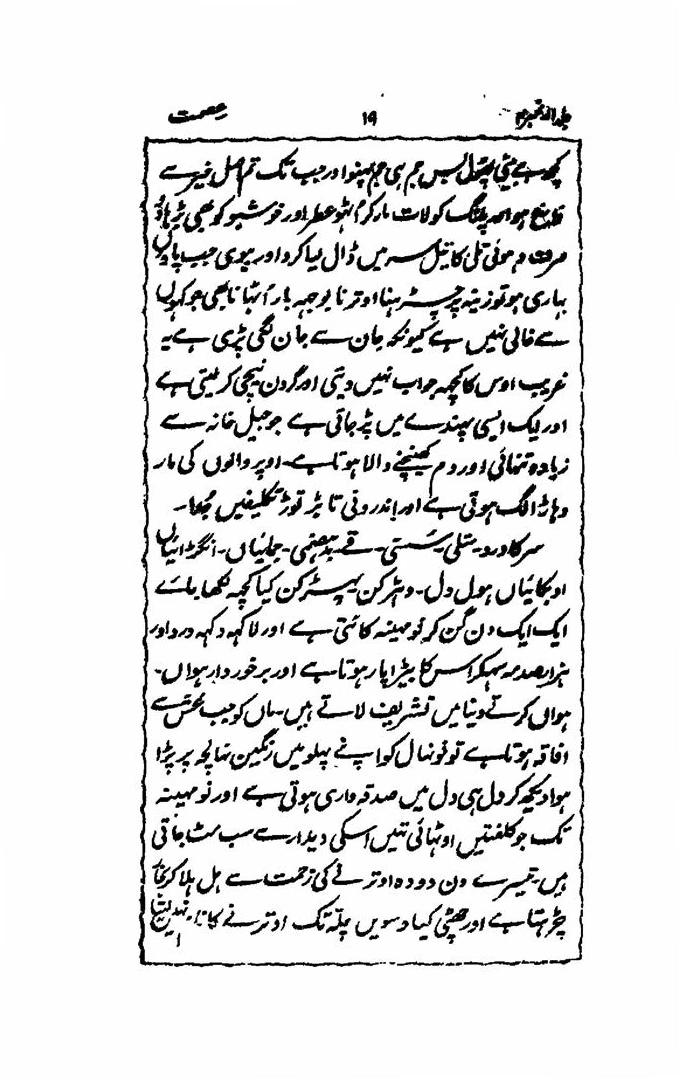 جلد ۱۱ نمبر ۳ ۱۹ عصمت
کچھ ہے بیٹی پھول بس جم ہی جم پہنو اور جب تک تم اصل خیر سے
فارغ ہو پلنگ کو لات مار کر اٹھو عطر اور خوشبو کو بھی نہ
صرف دہوئی تلی کا تیل سر میں ڈال لیا کرو اور بیوی جب پاؤں
بہاری ہو تو زینہ پر چڑہنا اوترنا بوجہہ بار اُٹہانا بھی جوکہوں
سے خالی نہیں ہے کیونکہ جان سے جان لگی پڑی ہے یہ
غریب اوس کا کچہہ جواب نہیں دیتی اور گردن نیچی کر لیتی ہے
اور ایک ایسی پہندے میں پڑ جاتی ہے جو جیل خانہ سے
زیادہ تنہائی اور دم کھینچنے والا ہوتا ہے۔ اوپر والوں کی مار
دہاڑ الگ ہوتی ہے اور اندرونی تابڑ توڑ تکلیفیں جُدا۔
سر کا درد۔ متلی۔ سستی۔ قے۔ بدہضمی۔ جمائیاں۔ انگڑائیاں
اوبکائیاں ہول دل۔ دہڑکن پہپڑکن کیا کچہہ لکھا جائے
ایک ایک دن گن کر نو مہینہ کاٹتی ہے اور لاکہہ دکہہ درد اور
ہزار صدمہ سہکر اس کا بیڑا پار ہوتا ہے اور برخوردار ہواں۔
ہواں کرتے دنیا میں تشریف لاتے ہیں۔ ماں کو جب غش سے
افاقہ ہوتا ہے تو نونہال کو اپنے پہلو میں رنگین نہالچہ پر پڑا
ہوا دیکھ کر دل ہی دل میں صدقہ واری ہوتی ہے اور نو مہینہ
تک جو کلفتیں اوٹہائی تہیں اسکی دیدار سے سب مٹ جاتی
ہیں۔ تیسرے دن دودہ اوترنے کی زحمت سے ہل ہلا کر بخار
چڑہتا ہے اور چھٹی کیا دسویں چلّہ تک اوترنے کا نام نہیں لیتا